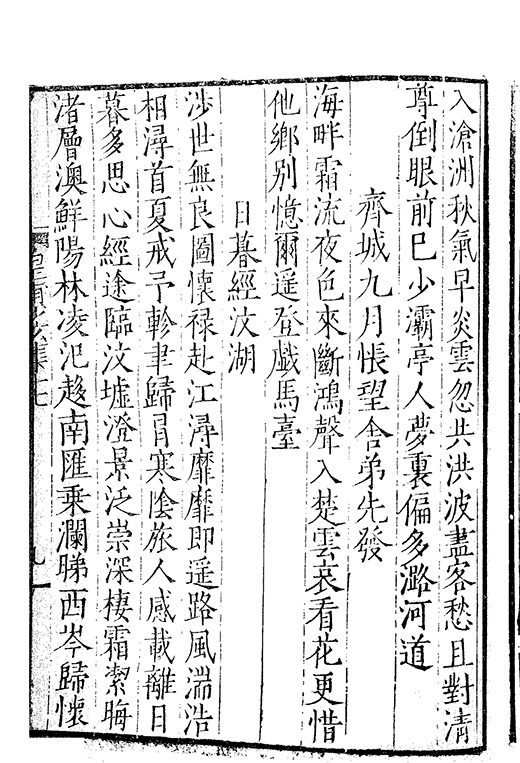 入滄洲秋氣早炎雲忽共洪波盡客愁且對清
尊倒眼前巳少灞亭人夢裏偏多潞河道
齊城九月悵望舍弟先發
海畔霜流夜色來斷鴻聲入楚雲哀看花更惜
他鄉别憶爾遥登戯馬臺
日暮經汶湖
涉世無良圖懷禄赴江潯靡靡即遥路風湍浩
相潯首夏戒予軫聿歸肙寒陰旅人感載離日
暮多思心經途臨汶墟澄景泛崇深棲霜潔晦
渚層澳鮮陽林凌汜趍南匯乘瀾睇西岑歸懷
集
九